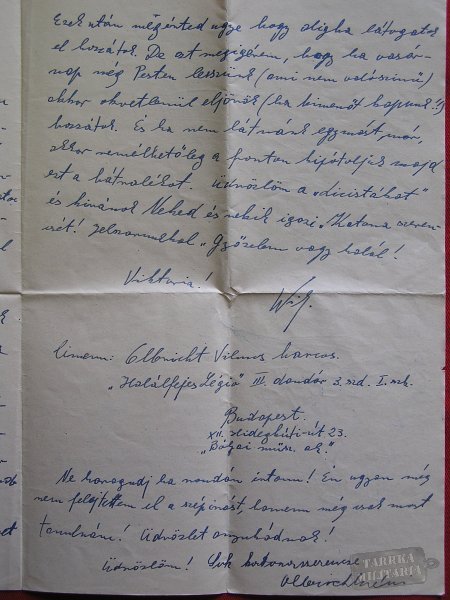 Ezek után megérted ugye hogy aligha látogatok
el hozzátok. De azt megigérem, hogy ha vasár-
nap még Pesten leszünk (ami nem valószinü)
akkor okvetlenül eljövök (ha kimenőt kapunk!)
hozzátok. És ha nem látnánk egymást már,
akkor remélhetőleg a fronton kipótoljuk majd
ezt a hátralékot. Üdvözlöm a
és kivánok Neked és nekik igazi "Katona szeren-
csét! Jelszavunkkal "Győzelem vagy halál!
Viktoria!
Wil.
Cimem: Olbricht Vilmos harcos.
"Halálfejes Légió" III. dandár 3. szd. I. szk.
Budapest.
XII. Hidegkúti-út 23.
"Bólyai müsz. ak."
Ne haragudj ha rondán irtam! Én ugyan még
nem felejtettem el a szépirást, hanem még csak most
tanulnám! Üdvözlet anyukádnak!
Üdvözlöm! Sok katonaszerencse
Olbricht Vilmos
TARRKA
MILITARIA